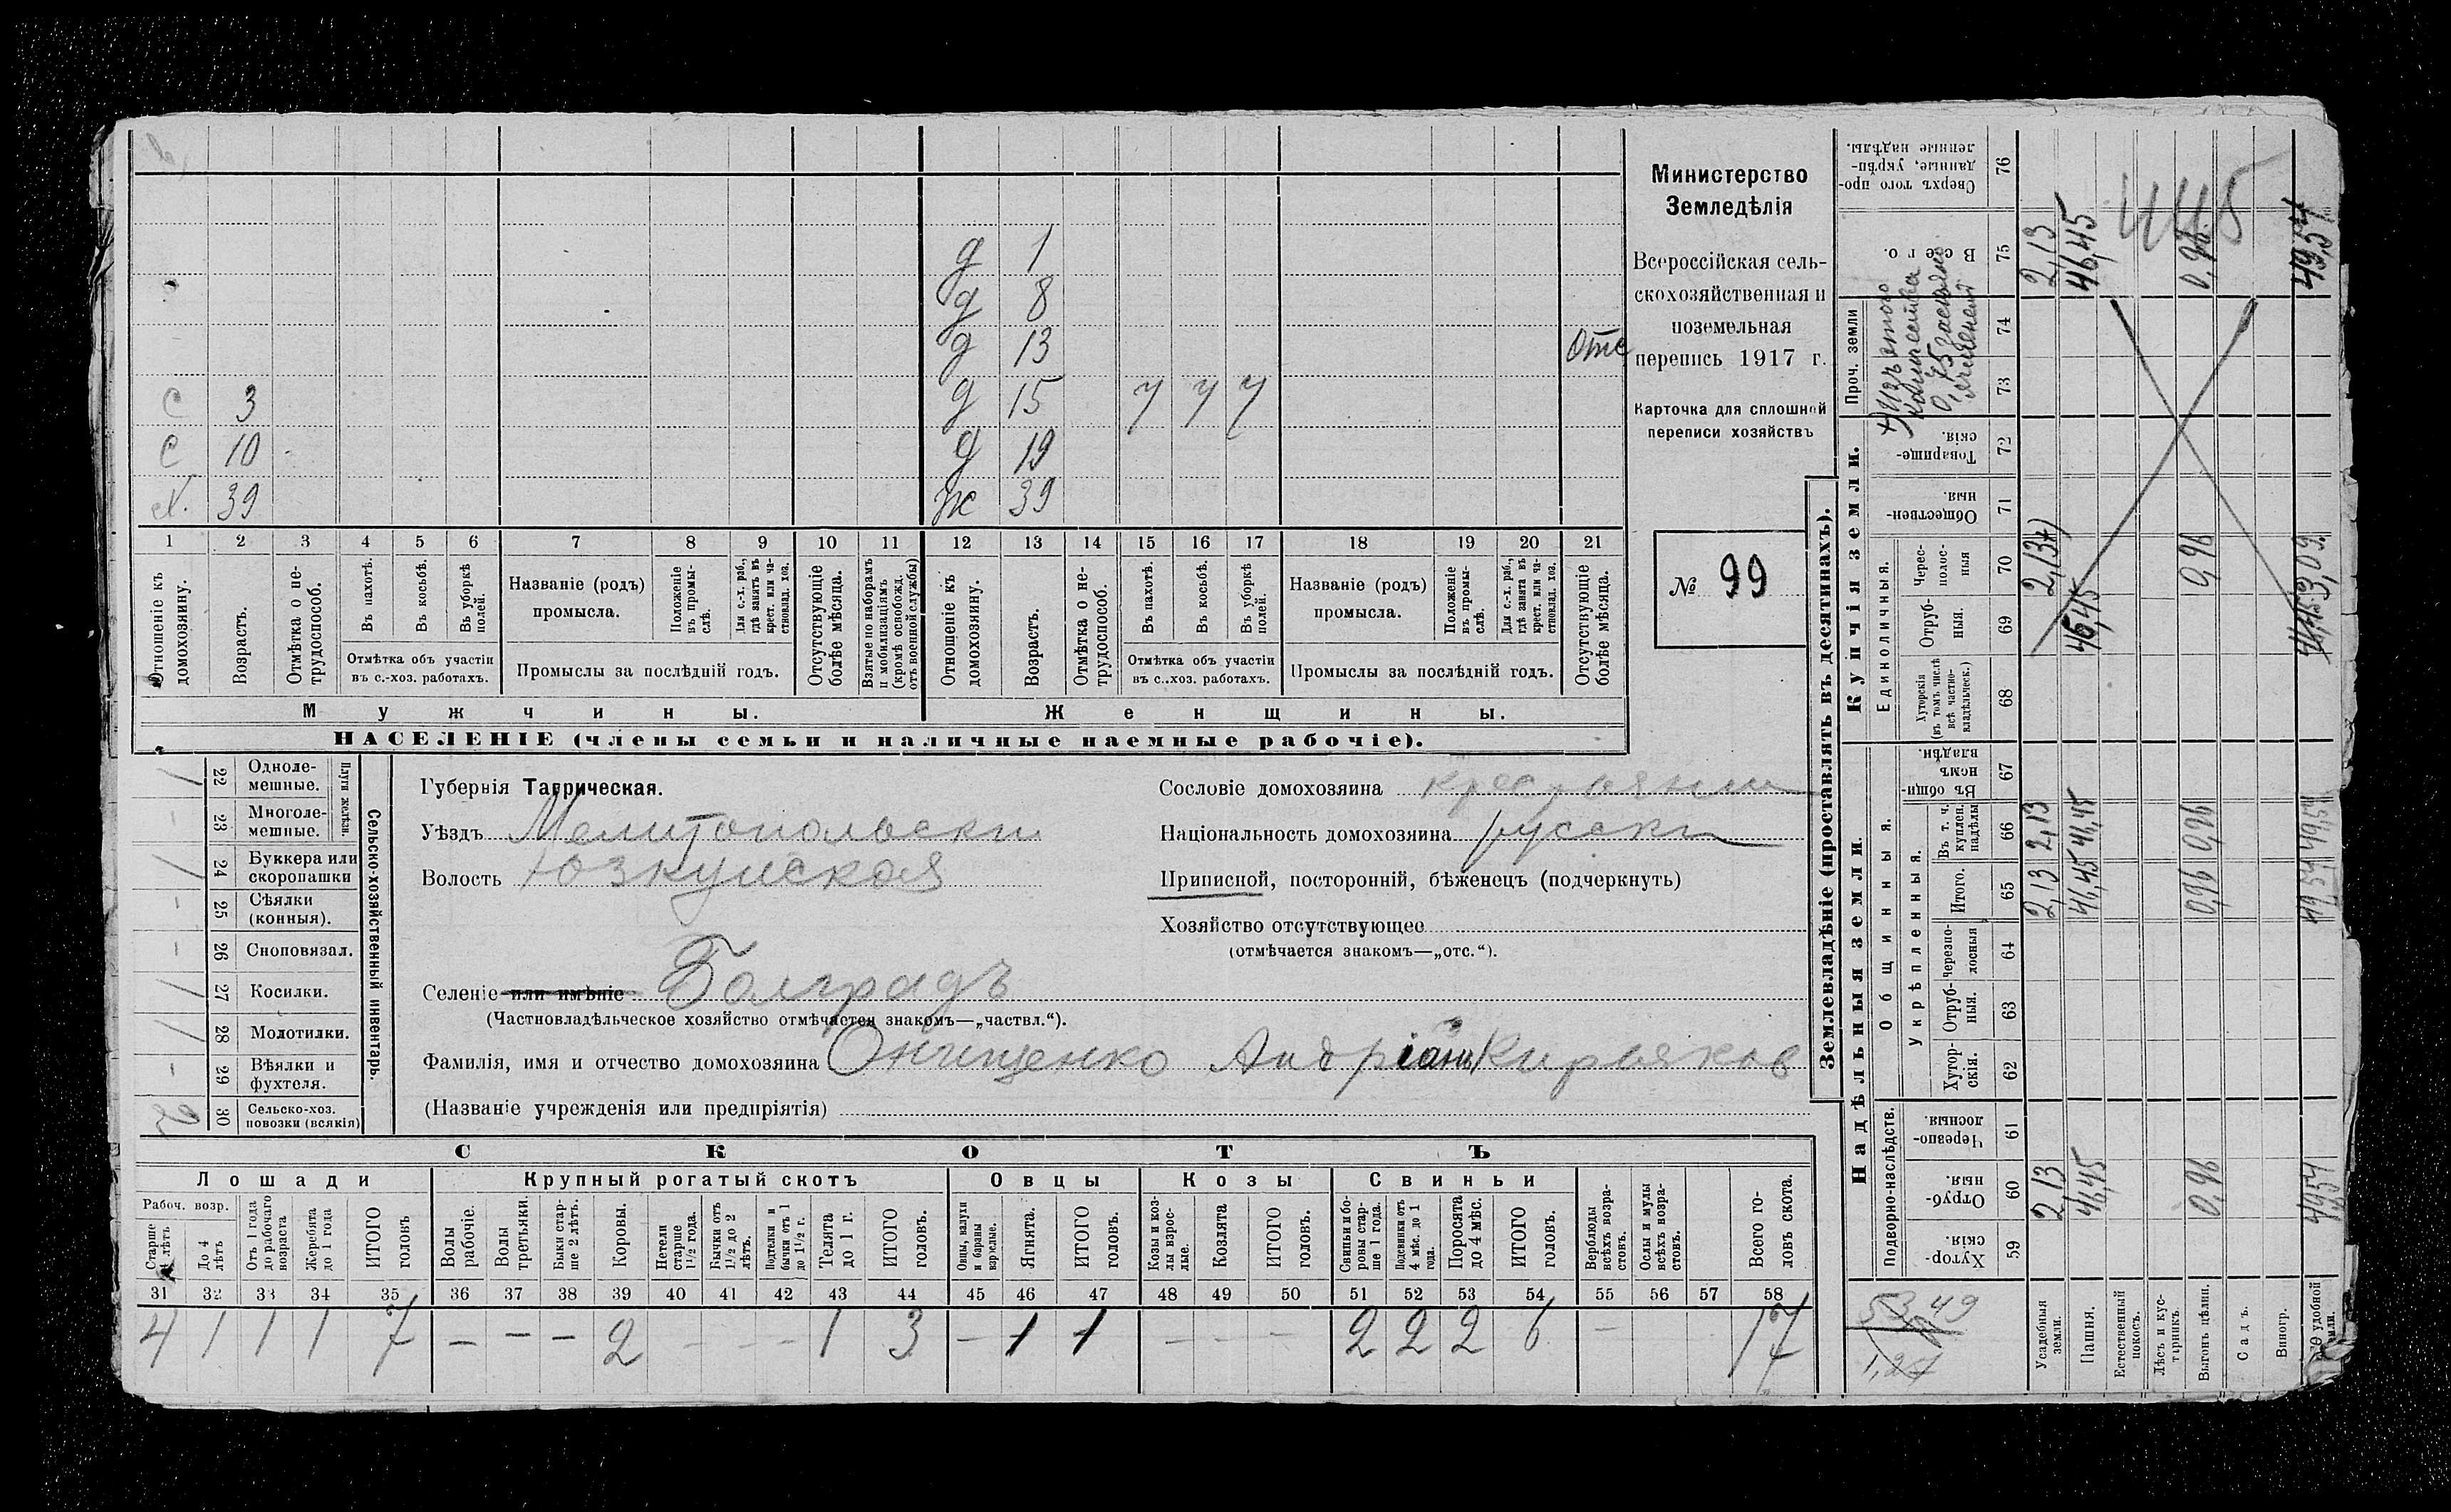 Министерство
Земледѣлія
Всероссійская сель-
скохозяйственная и
поземельная
перепись 1917 г.
Карточка для сплошной
переписи хозяйствъ
№ 99
д 1
д 8
д 13 отс
с 3 д 15 у у у
с 10 д 19
х. 39 ж 39
1 2 3 4 5 6 7 8 9 10 11 12 13 14 15 16 17 18 19 20 21
Отношеніе къ домохозяину.
Возрастъ.
Отмѣтка о не-трудоспособ.
Въ пахотѣ.
Въ косьбѣ.
Въ уборкѣ полей.
Отмѣтка объ участіи въ с.-хоз. работахъ.
Названіе (родъ) промысла.
Положеніе въ промы-слѣ.
Для с.-х. раб., гдѣ занятъ въ крест. или ча-стновлад. хоз.
Промыслы за послѣдній годъ.
Отсутствующіе болѣе мѣсяца.
Взятые по наборамъ и мобилизаціямъ (кромѣ освобожд. отъ военной службы)
Отношеніе къ домохозяину.
Возрастъ.
Отмѣтка о не-трудоспособ.
Въ пахотѣ.
Въ косьбѣ.
Въ уборкѣ полей.
Отмѣтка объ участіи въ с..хоз. работахъ.
Названіе (родъ) промысла.
Положеніе въ промы-слѣ.
Для с.-х. раб., гдѣ занята въ крест. или ча-стновлад. хоз.
Промыслы за послѣдній годъ.
Отсутствующіе болѣе мѣсяца.
Мужчины. Женщины.
НАСЕЛЕНІЕ (члены семьи и наличные наемные рабочіе).
Сельско-хозяйственный инвентарь.
Плуги желѣзн.
/ 22 Одноле-мешные.
- 23 Многоле-мешные.
/ 24 Буккера или скоропашки
- 25 Сѣялки (конныя).
- 26 Сноповязал.
/ 27 Косилки.
/ 28 Молотилки.
- 29 Вѣялки и фухтеля.
2 30 Сельско-хоз. повозки (всякія)
Губернія Таврическая.
Уѣздъ Мелитопольски
Волость Юзкуйская
Селеніе или имѣніе Болградъ
(Частновладѣльческое хозяйство отмѣчается знакомъ—„частвл.“).
Фамилія, имя и отчество домохозяина Онищенко Андріанъ Кирьяков
(Названіе учрежденія или предпріятія)
Сословіе домохозяина крестьянин
Національность домохозяина русски
Приписной, посторонній, бѣженецъ (подчеркнуть)
Хозяйство отсутствующее
(отмѣчается знакомъ—„отс.“).
СКОТЪ
Лошади Крупный рогатый скотъ Овцы Козы Свиньи
Рабоч. возр.
Старше 4 лѣтъ
До 4 лѣтъ
Отъ 1 года до рабочаго возраста
Жеребята до 1 года
ИТОГО головъ
Волы рабочіе.
Волы третьяки.
Быки стар-ше 2 лѣтъ.
Коровы.
Нетели старше 1½ года.
Бычки отъ 1½ до 2 лѣтъ.
Подтелки и бычки отъ 1 до 1½ г.
Телята до 1 г.
ИТОГО головъ.
Овцы, валухи и бараны взрослые.
Ягнята.
ИТОГО головъ.
Козы и коз-лы взрос-лые.
Козлята
ИТОГО головъ.
Свиньи и бо-ровы стар-ше 1 года.
Подсвинки отъ 4 мѣс. до 1 года.
Поросята до 4 мѣс.
ИТОГО головъ.
Верблюды всѣхъ возра-стовъ.
Ослы и мулы всѣхъ возра-стовъ.
Всего го-ловъ скота.
31 32 33 34 35 36 37 38 39 40 41 42 43 44 45 46 47 48 49 50 51 52 53 54 55 56 57 58
4 1 1 1 7 - - - 2 - - - 1 3 - 1 1 - - - 2 2 2 6 - 17
Землевладѣніе (проставлять въ десятинахъ).
Купчія земли.
Надѣльныя земли.
Сверхъ того про-данные, укрѣп-ленные надѣлы. 76
Всего. 75
Проч. земли 74 73
Товарище-скія. 72
Обществен-ныя. 71
Единоличныя.
Черес-полос-ныя 70
Отруб-ныя. 69
Хуторскія (въ томъ числѣ всѣ частно-владѣльческ.) 68
Общинныя.
Въ общи-номъ владѣн. 67
Укрѣпленныя.
Въ т. ч. куплен. надѣлы 66
Итого. 65
Черезпо-лосныя 64
Отруб-ныя. 63
Хутор-скія. 62
Подворно-наслѣдств.
Черезпо-лосныя. 61
Отруб-ныя. 60
Хутор-скія. 59
Усадебныя земли. 2,13 2,13 2,13 2,13 2,13
Пашня. 46,45 46,45 46,45 46,45 46,45
Естественный покосъ.
Лѣсъ и кус-тарникъ.
Выгонъ цѣлин. 0,96 0,96 0,96 0,96 0,96
Садъ.
Виногр.
удобной земли. 49,54 49,54 49,54 3,09 49,54
445